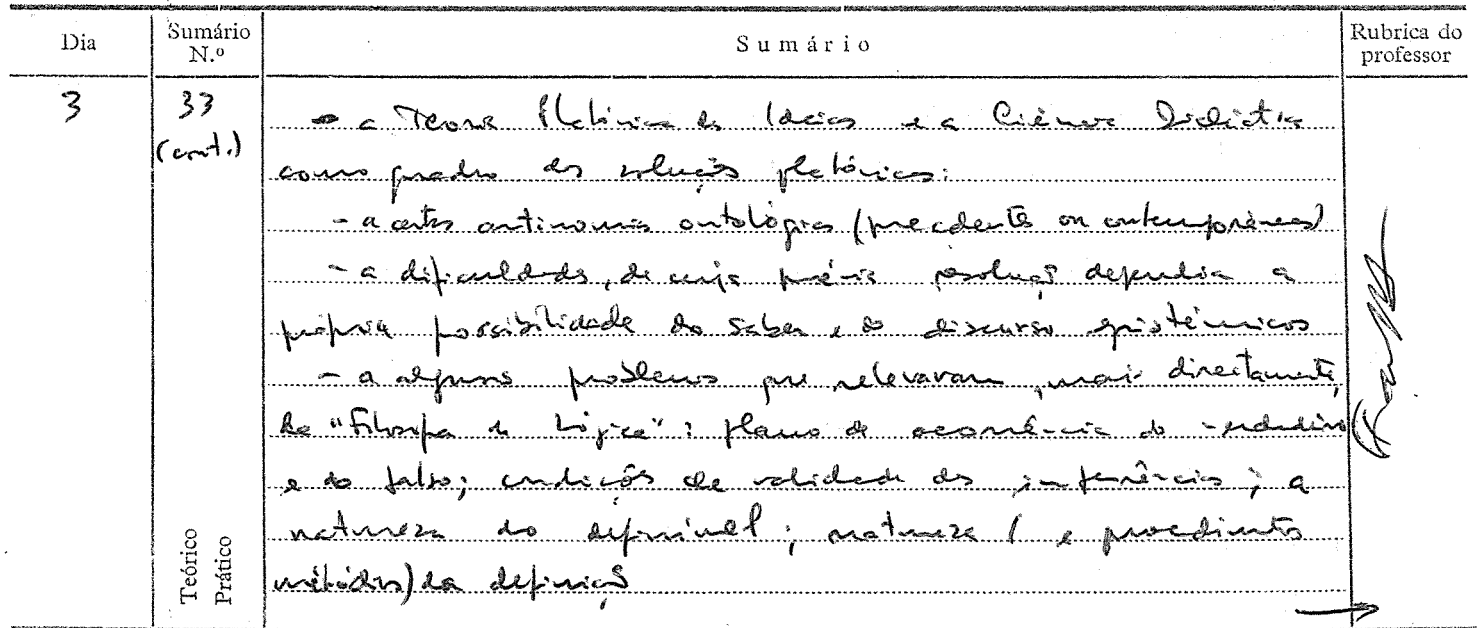 Dia
Sumário N.º
Sumário
Rubrica do professor
3
33
(cont.)
a Teoria Platónica das Ideias e a Ciência Dialéctica
como quadro das soluções platónicas:
- a certas antinomias ontológicas (precedentes ou contemporâneas)
- a dificuldades, de cuja prévia resolução dependia a
própria possibilidade do saber e do discurso epistémicos
- a alguns problemas que relevavam, mais directamente,
da "Filosofia da Lógica": plano de ocorrência do verdadeiro
e do falso; condições de validade das inferências; a
natureza do definível; natureza (e procedimentos
metódicos) da definição
Teórico
Prático